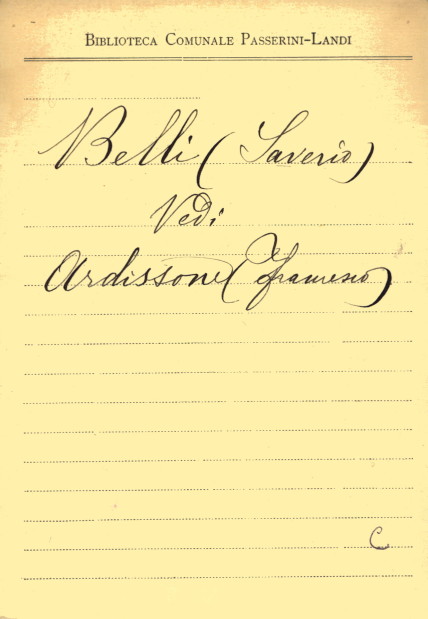 Biblioteca Comunale Passerini-Landi
Belli (Saverio)
Vedi
Ardissone (Francesco)
C